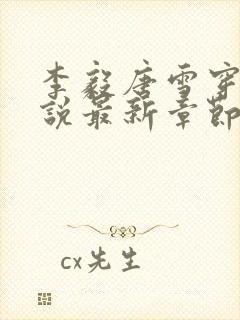 李毅唐雪穿
说最新章节
cx先生